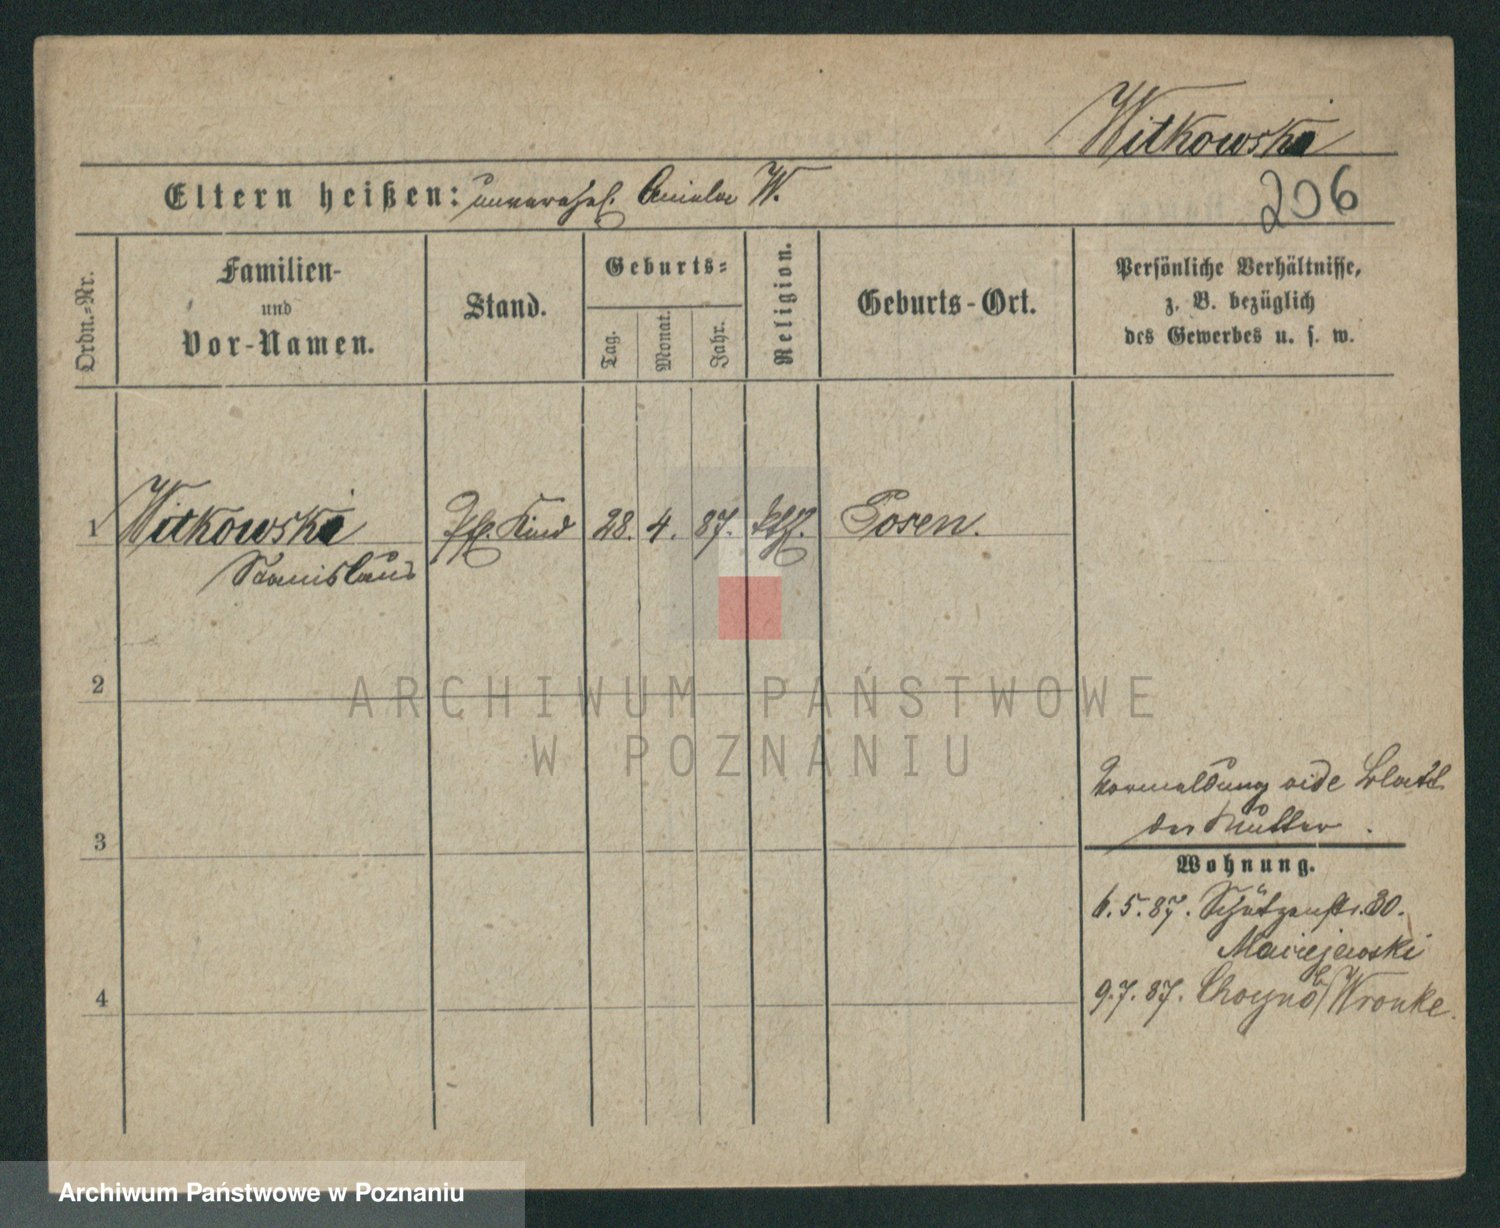 Witkowski
Eltern heißen: unverehel. Aniela W.
206
Ordn.-Nr.
Familien-
und
Vor-Namen.
Stand.
Geburts-
Tag.
Monat.
Jahr.
Religion.
Geburts-Ort.
Persönliche Verhältnisse,
z. B. bezüglich
des Gewerbes u. s. w.
1 Witkowski Kind 28. 4. 87. kth. Posen.
Stanislaus
2
ARCHIWUM PAŃSTWOWE
W POZNANIU
Vormeldung vide Blatt
der Mutter.
3
Wohnung.
6.5.87. Schützenstr. 30.
Maciejewski
4 9.7.87. Choyno b/Wronke.
Archiwum Państwowe w Poznaniu